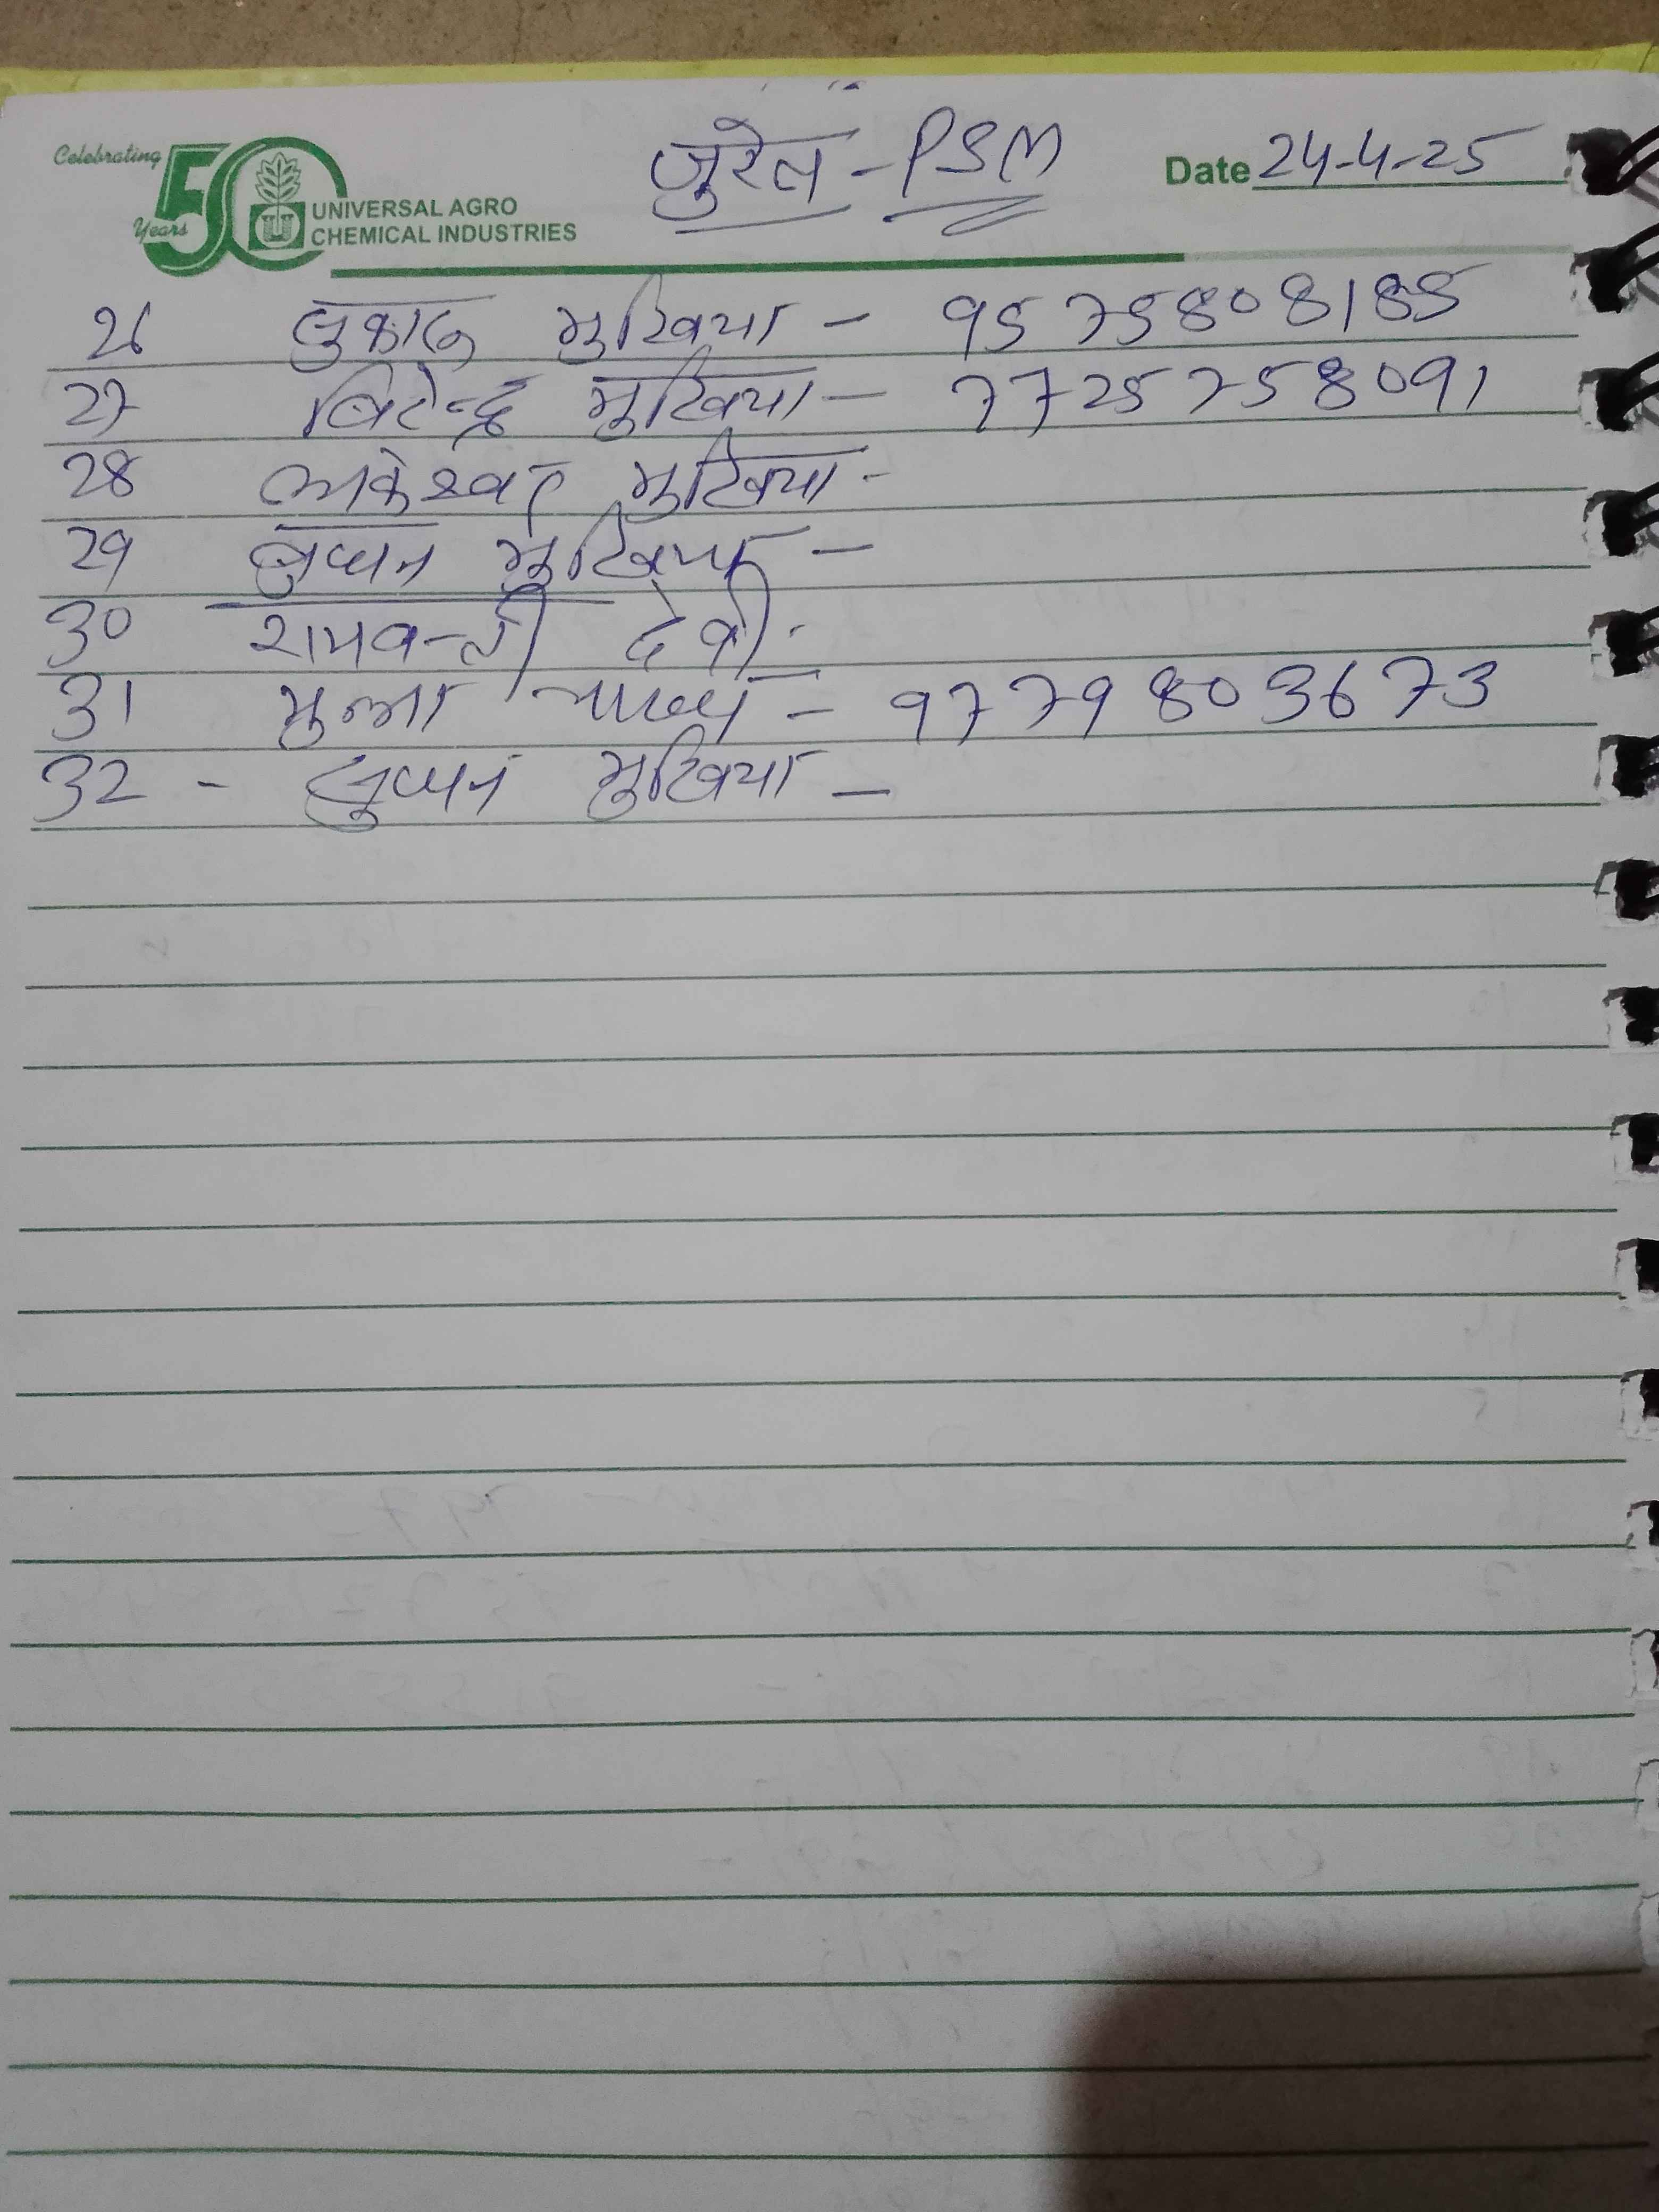 Celebrating 50 Years
UNIVERSAL AGRO
CHEMICAL INDUSTRIES
जुरैल - PSM
Date 24-4-25
26 मुखिया - 9575808185
27 बिरेन्द्र मुखिया - 7725758091
28 मुखिया -
29 बुधन मुखिया -
30 रामवन्ती देवी -
31 मुन्ना - 9779803673
32 - मुखिया -